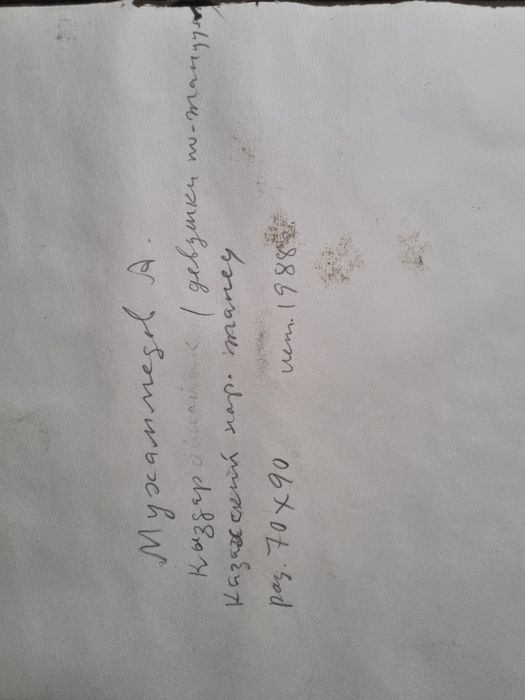 Мухаммедов А.
Кыздар (девушки по-
Казахский нар. танец
раз. 70 х 90 1988